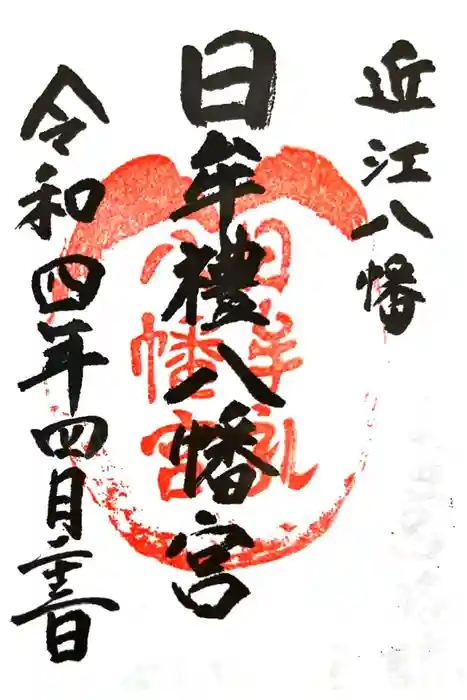 近江八幡
日牟禮八幡宮
日牟礼
八幡宮
令和四年四月二十三日